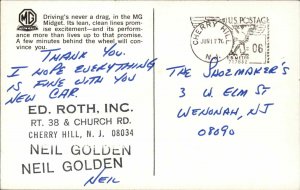 MG
Driving's never a drag, in the MG
Midget. Its lean, clean lines prom-
ise excitement—and its perform-
ance more than lives up to that promise.
A few minutes behind the wheel will con-
vince you.
THANK YOU.
I HOPE EVERYTHING
IS FINE WITH YOU
NEW CAR.
ED. ROTH, INC.
RT. 38 & CHURCH RD.
CHERRY HILL, N. J. 08034
NEIL GOLDEN
NEIL GOLDEN
NEIL
CHERRY HILL
JUN 17
N.J.
US POSTAGE
06
THE SHOEMAKER'S
3 W. ELM ST
WENONAH, NJ
08090